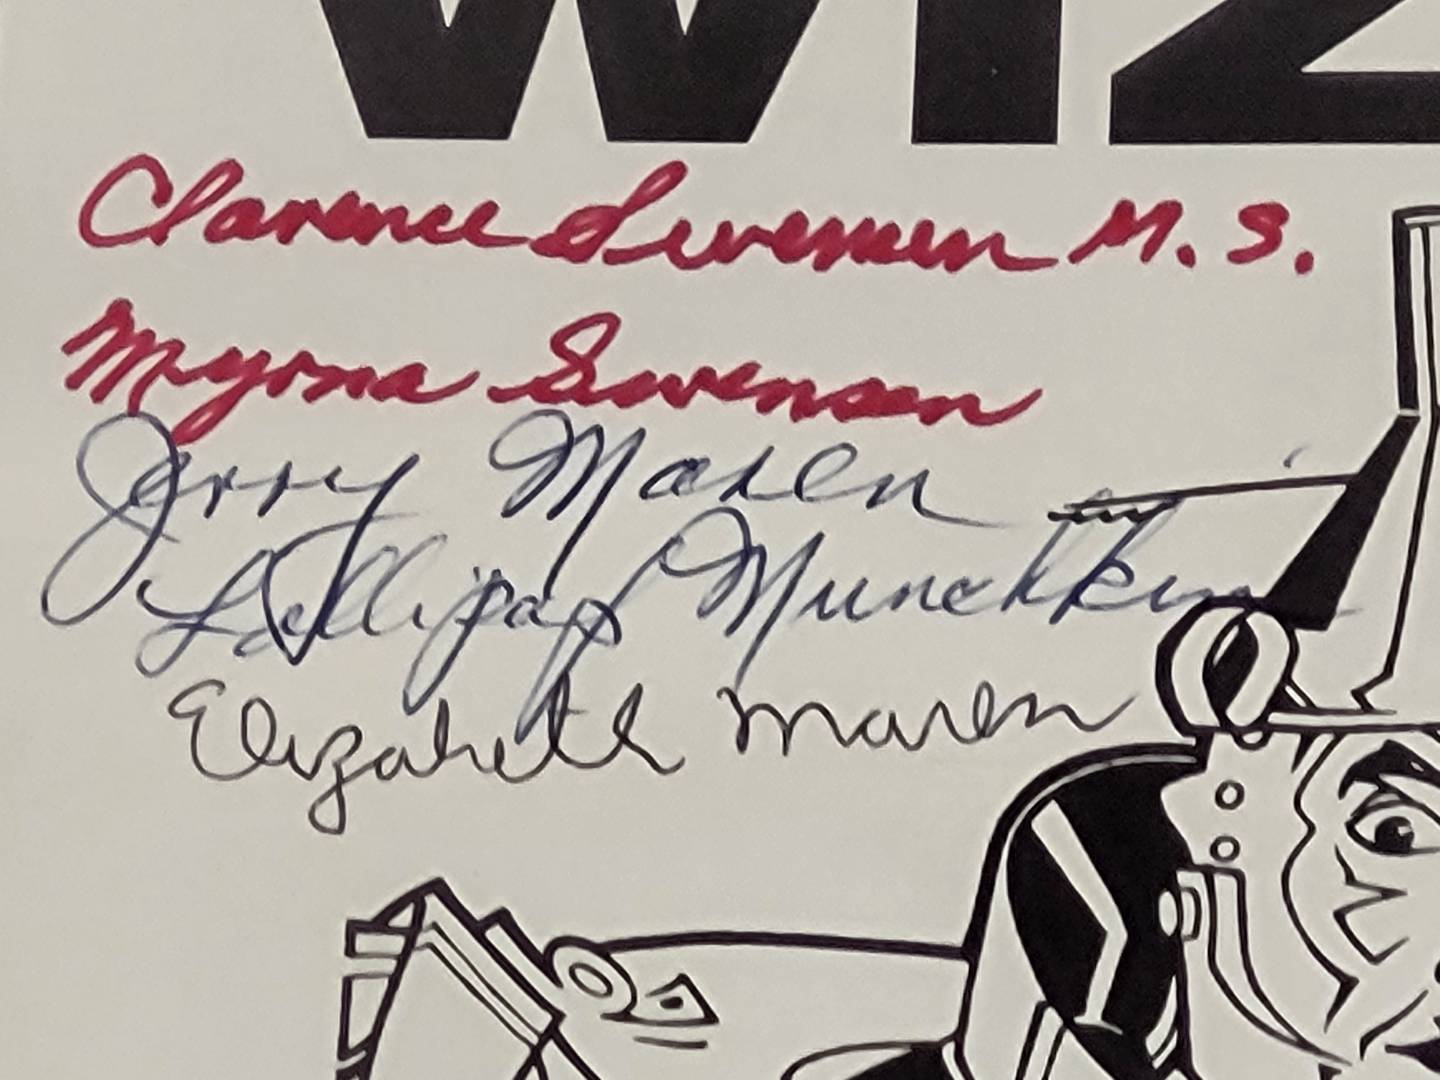 WIZ
Clarence Swensen M.S.
Myrna Swensen
Jerry Maren
Lollipop Munchkin
Elizabeth Maren